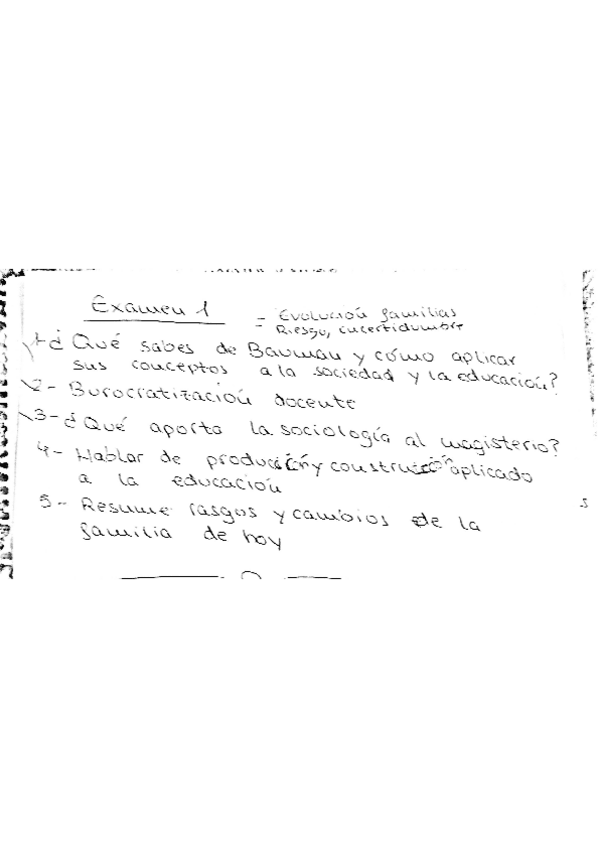 Examen 1
= Evolución familias
= Riesgo, incertidumbre
1- ¿Qué sabes de Bauman y cómo aplicar
sus conceptos a la sociedad y la educación?
2- Burocratización docente
3- ¿Qué aporta la sociología al magisterio?
4- Hablar de producción y construcción aplicado
a la educación
5- Resume rasgos y cambios de la
familia de hoy